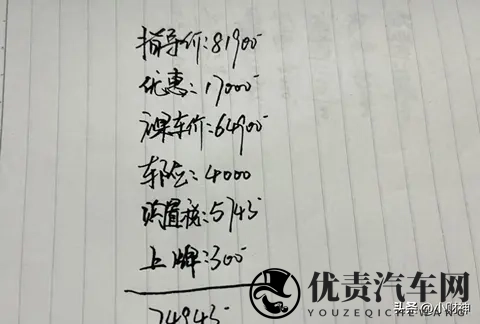 指导价:81900
优惠:17000
裸车价:64900
车险:4000
购置税:5745
上牌:300
74945
优责汽车网
YOUZEQICHEWANG
头条